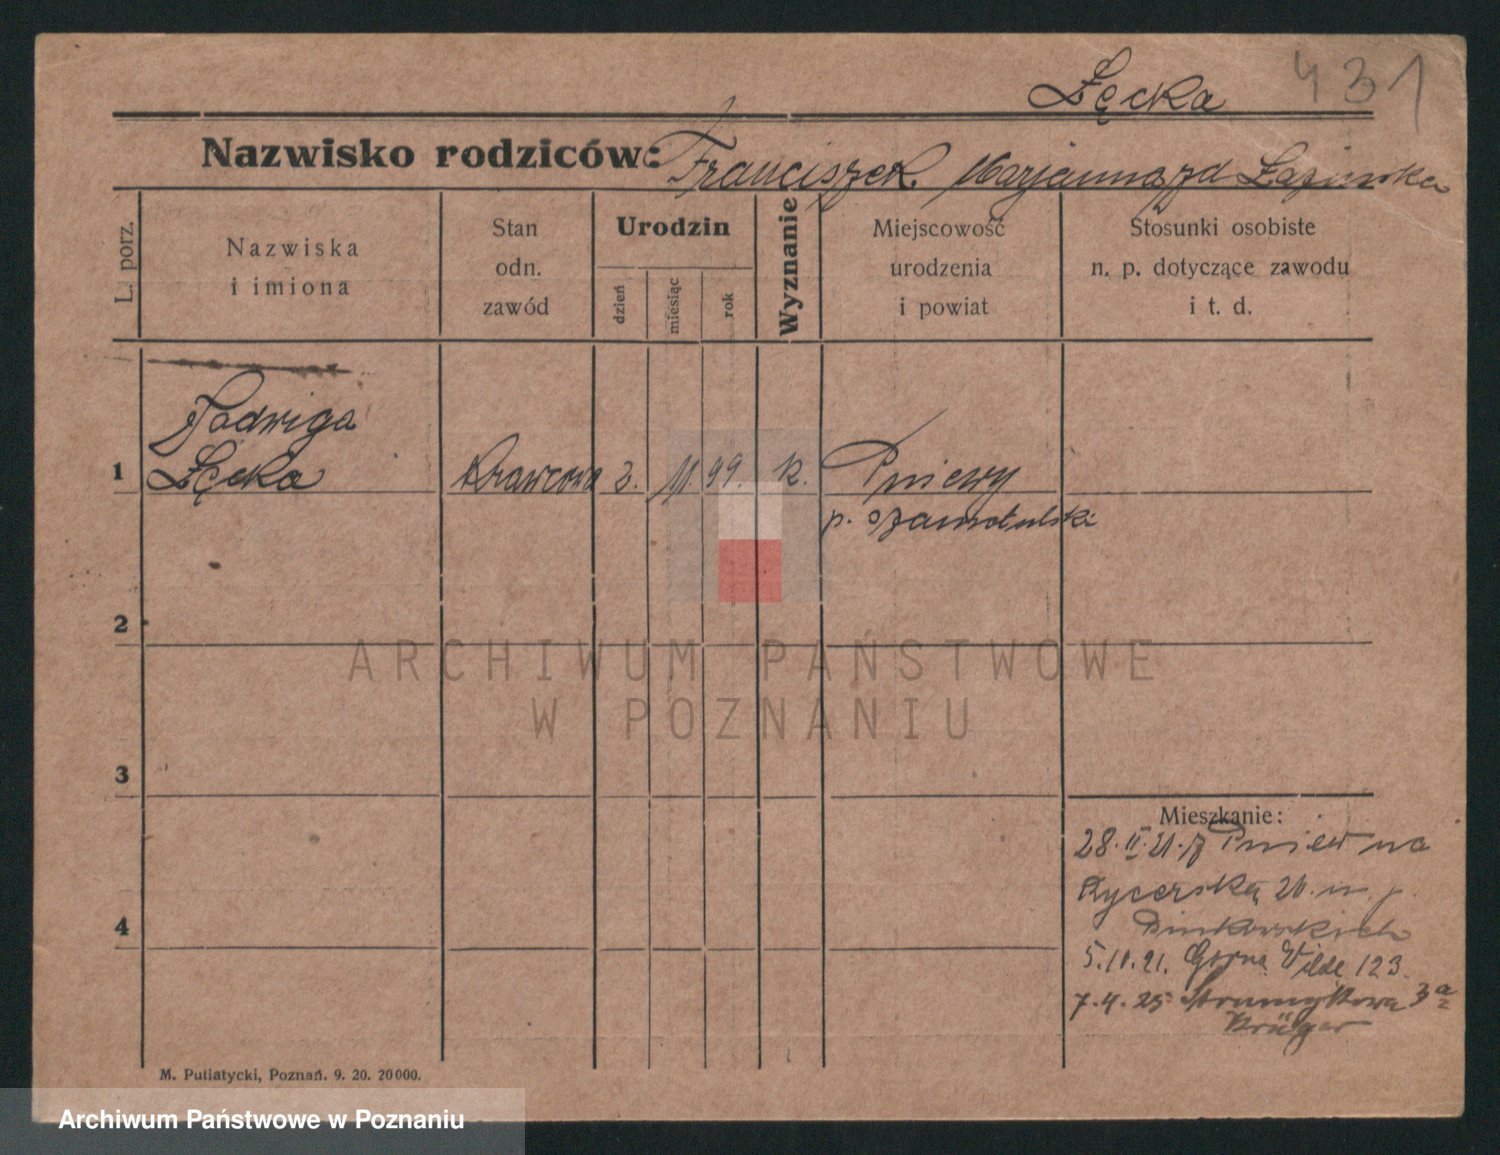 Łęcka 431
Nazwisko rodziców: Franciszek. Marjanna zd Łazińska
L. porz.
Nazwiska
i imiona
Stan
odn.
zawód
Urodzin
dzień
miesiąc
rok
Wyznanie
Miejscowość
urodzenia
i powiat
Stosunki osobiste
n. p. dotyczące zawodu
i t. d.
Jadwiga
1 Łęcka Krawcowa 2. 11. 99. k. Pniewy
p. szamotulski
2
ARCHIWUM PAŃSTWOWE
W POZNANIU
3
Mieszkanie:
28.II.21. z Pniew na
Rycerską 20. m. p.
4
5.10.21. Gorna Wilde 123.
7.4.25 Strumykowa 3a
Krüger
M. Putiatycki, Poznań. 9. 20. 20000.
Archiwum Państwowe w Poznaniu